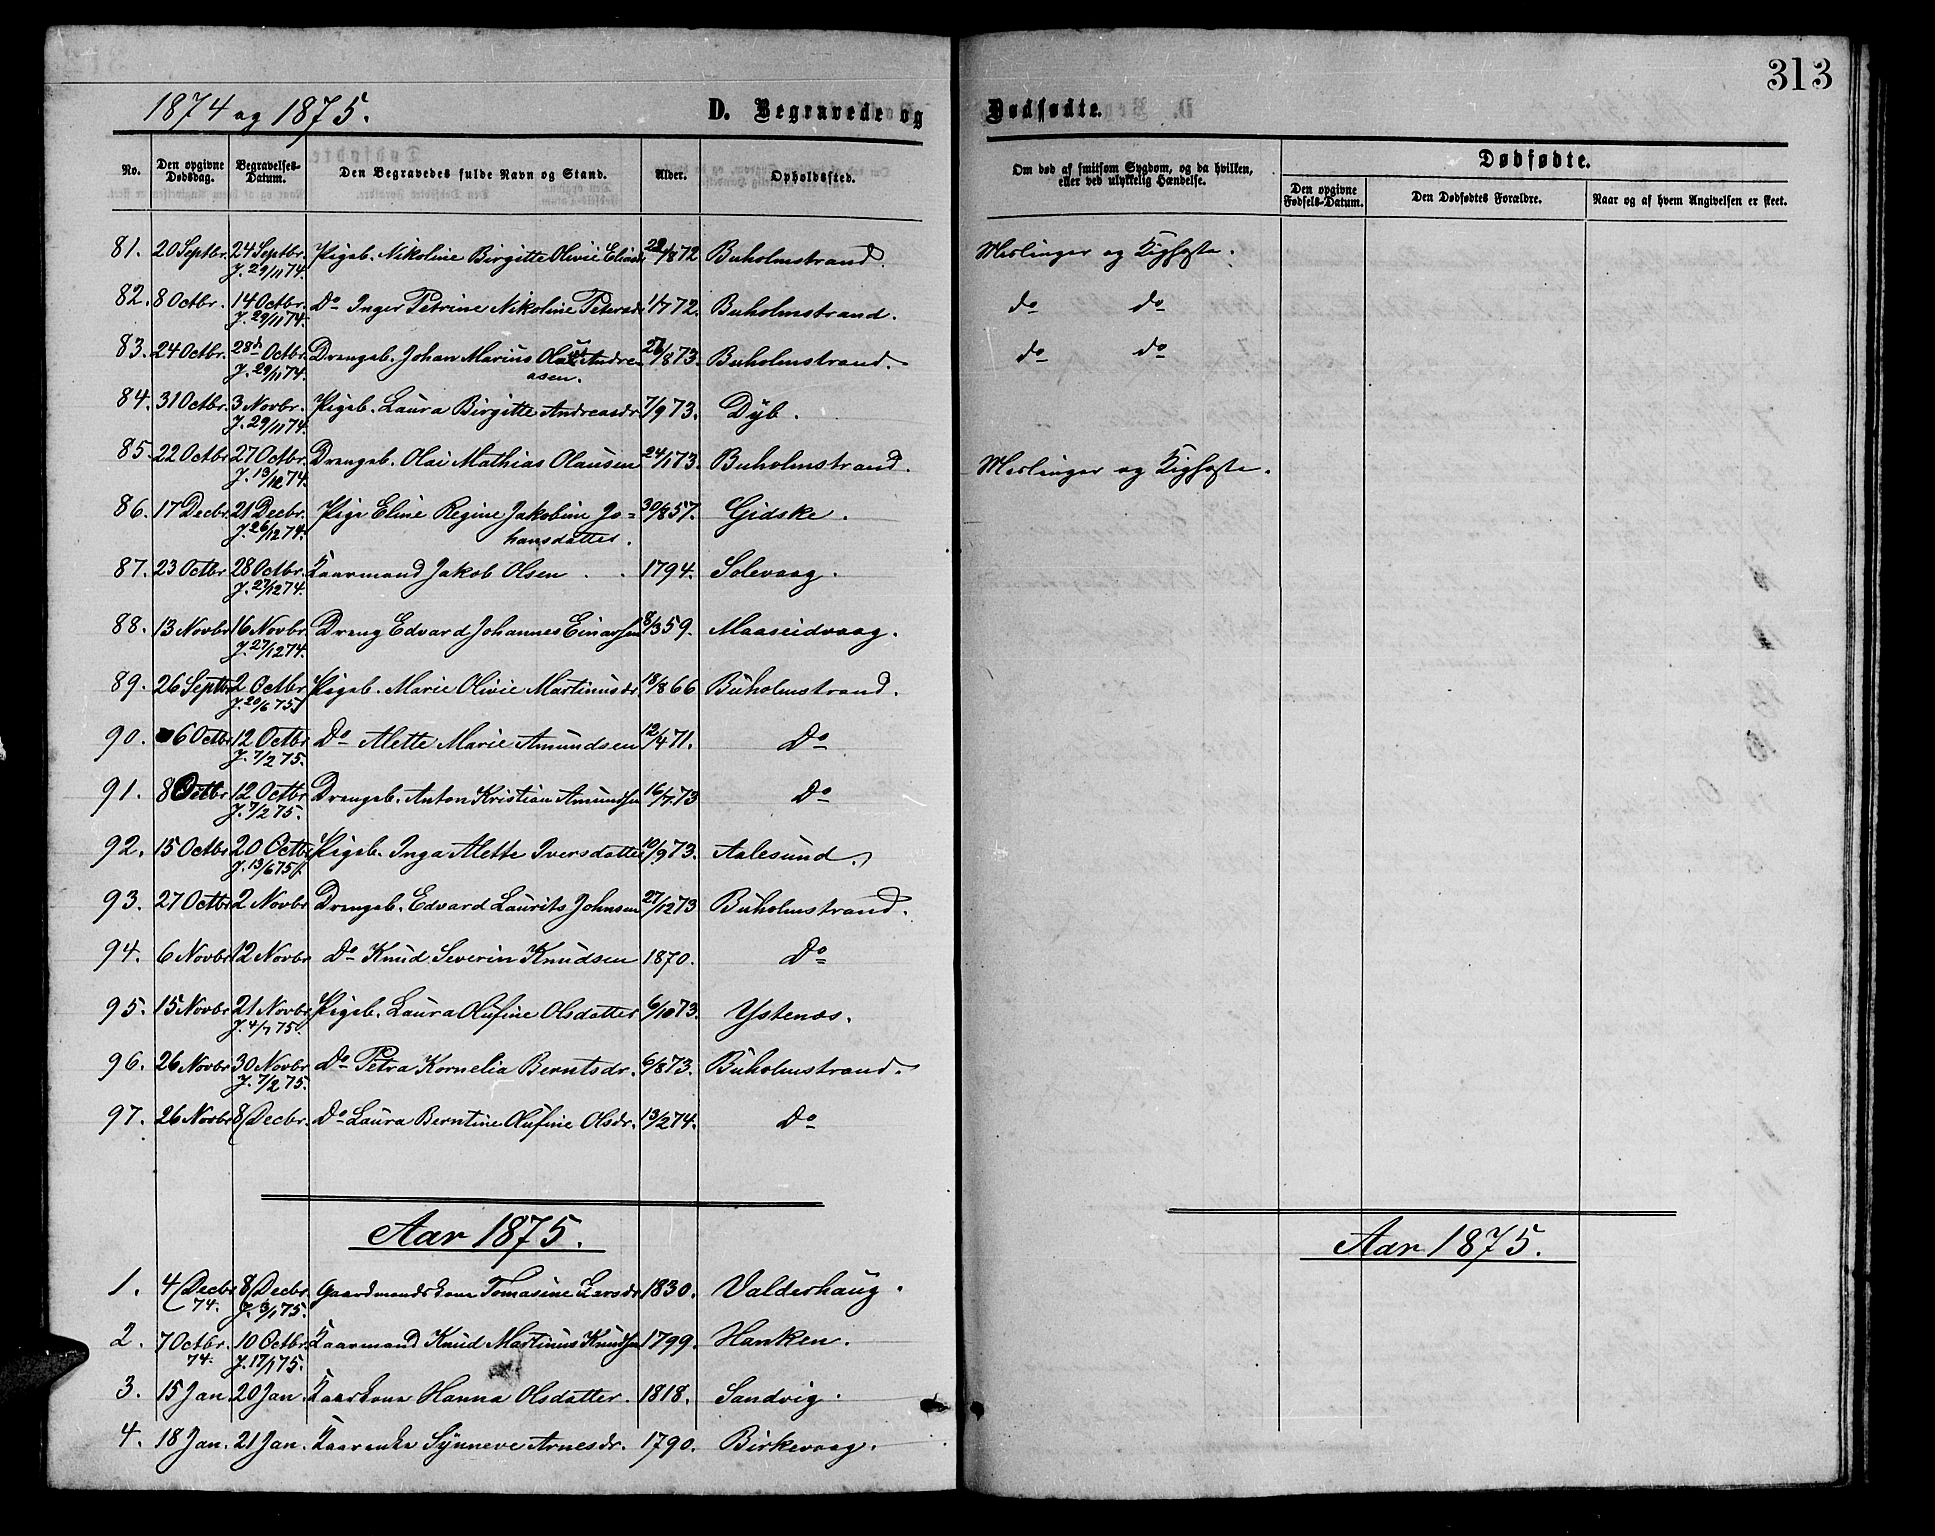 313
1874 og 1875. D. Begravede og Dødfødte.
No. Den opgivne Dødsdag. Begravelses-Datum. Den Begravedes fulde Navn og Stand. Alder. Opholdssted. Om død af smitsom Sygdom, og da hvilken, eller ved ulykkelig Hændelse. Dødfødte.
Den opgivne Fødsels-Datum. Den Dødfødtes Forældre. Naar og af hvem Angivelsen er skeet.
81. 20 Septbr. 24 Septbr. Pigeb. Nikoline Birgitte Olivie 1872 Buholmstrand. Meslinger og Kighoste.
J. 29/11 74
82. 8 Octbr. 14 Octbr. Do Inger Petrine Nikoline Petersdr 1/7 72. Buholmstrand. do do
J. 29/11 74.
83. 24 Octbr. 28d Octbr. Drengeb. Johan Marius Andre- 8 73. Buholmstrand. do do
J. 29/11 74. asen.
84. 31 Octbr. 3 Novbr. Pigeb. Laura Birgitte Andreasdr. 7/9 73. Dyb.
J. 29/11 74.
85. 22 Octbr. 27 Octbr. Drengeb. Olai Mathias Olausen 24/1 73. Buholmstrand. Meslinger og Kighoste.
J. 13/12 74.
86. 17 Decbr. 21 Decbr. Pige Eline Regine Jakobine Jo- 30/8 57. Gidske.
J. 26/12 74. hansdatter.
87. 23 Octbr 28 Octbr. Kaarmand Jakob Olsen 1794. Solevaag.
J. 27/12 74.
88. 13 Novbr 16 Novbr. Dreng Edvard Johannes Einarsen 8/3 59. Maaseidvaag.
J. 27/12 74.
89. 26 Septbr. 2 Octbr Pigeb. Marie Olivie Martinusdr. 18/8 66 Buholmstrand.
J. 20/6 75
90. 6 Octbr 12 Octbr Do Alette Marie Amundsen 12/4 71. Do
J. 7/2 75.
91. 8 Octbr 12 Octbr Drengeb. Anton Kristian Amundsen 16/7 73 Do
J. 7/2 75.
92. 15 Octbr 20 Octbr Pigeb. Inga Alette Iversdatter 10/9 73. Aalesund.
J. 13/6 75.
93. 27 Octbr 2 Novbr Drengeb. Edvard Laurits Johnsen 27/12 73 Buholmstrand.
94. 6 Novbr 12 Novbr Do Knud Severin Knudsen 1870. Do
95. 15 Novbr 21 Novbr Pigeb. Laura Olufine Olsdatter 6/10 73. Ystenæs.
J. 4/7 75.
96. 26 Novbr 30 Novbr Do Petra Kornelia Berntsdr. 6/8 73. Buholmstrand.
J. 7/2 75.
97. 26 Novbr 8/Decbr. Do Laura Berntine Olufine Olsdr. 13/2 74. Do
Aar 1875. Aar 1875.
1. 4/Decbr 8/Decbr. Gaardmandskone Tomasine 1830. Valderhaug.
74. J. 3/1 75.
2. 7 Octbr. 10 Octbr. Kaarmand Knud Martinus Knudsen 1799. Hanken.
74. J. 17/1 75.
3. 15 Jan 20 Jan. Kaarkone Hanna Olsdatter. 1818. Sandvig.
4. 18 Jan. 21 Jan. Kaarenke Synneve Arnesdr. 1790. Birkevaag.